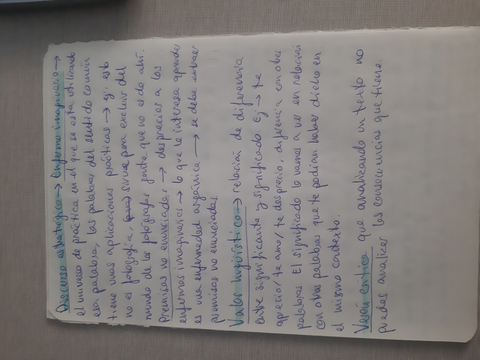 Discurso estratégico → Enfermo imaginario →
el universo de práctica en el que se está utilizando
esa palabra, las palabras del sentido común
tiene unas aplicaciones prácticas → ej: esto
no es fotografía, sirve para excluir del
mundo de los fotógrafos gente que no es de ahí.
Premisas no enunciadas → desprecias a los
enfermos imaginarios → lo que le interesa aprender
es una enfermedad orgánica → se debe extraer
premisas no enunciadas.
Valor lingüístico → relación de diferencia
entre significante y significado. Ej → te
aprecio, te amo, te desprecio, diferencia con otras
palabras. El significado lo vamos a ver en relación
con otras palabras que te podían haber dicho en
el mismo contexto.
Versión crítica que analizando un texto no
puedes analizar las consecuencias que tiene.